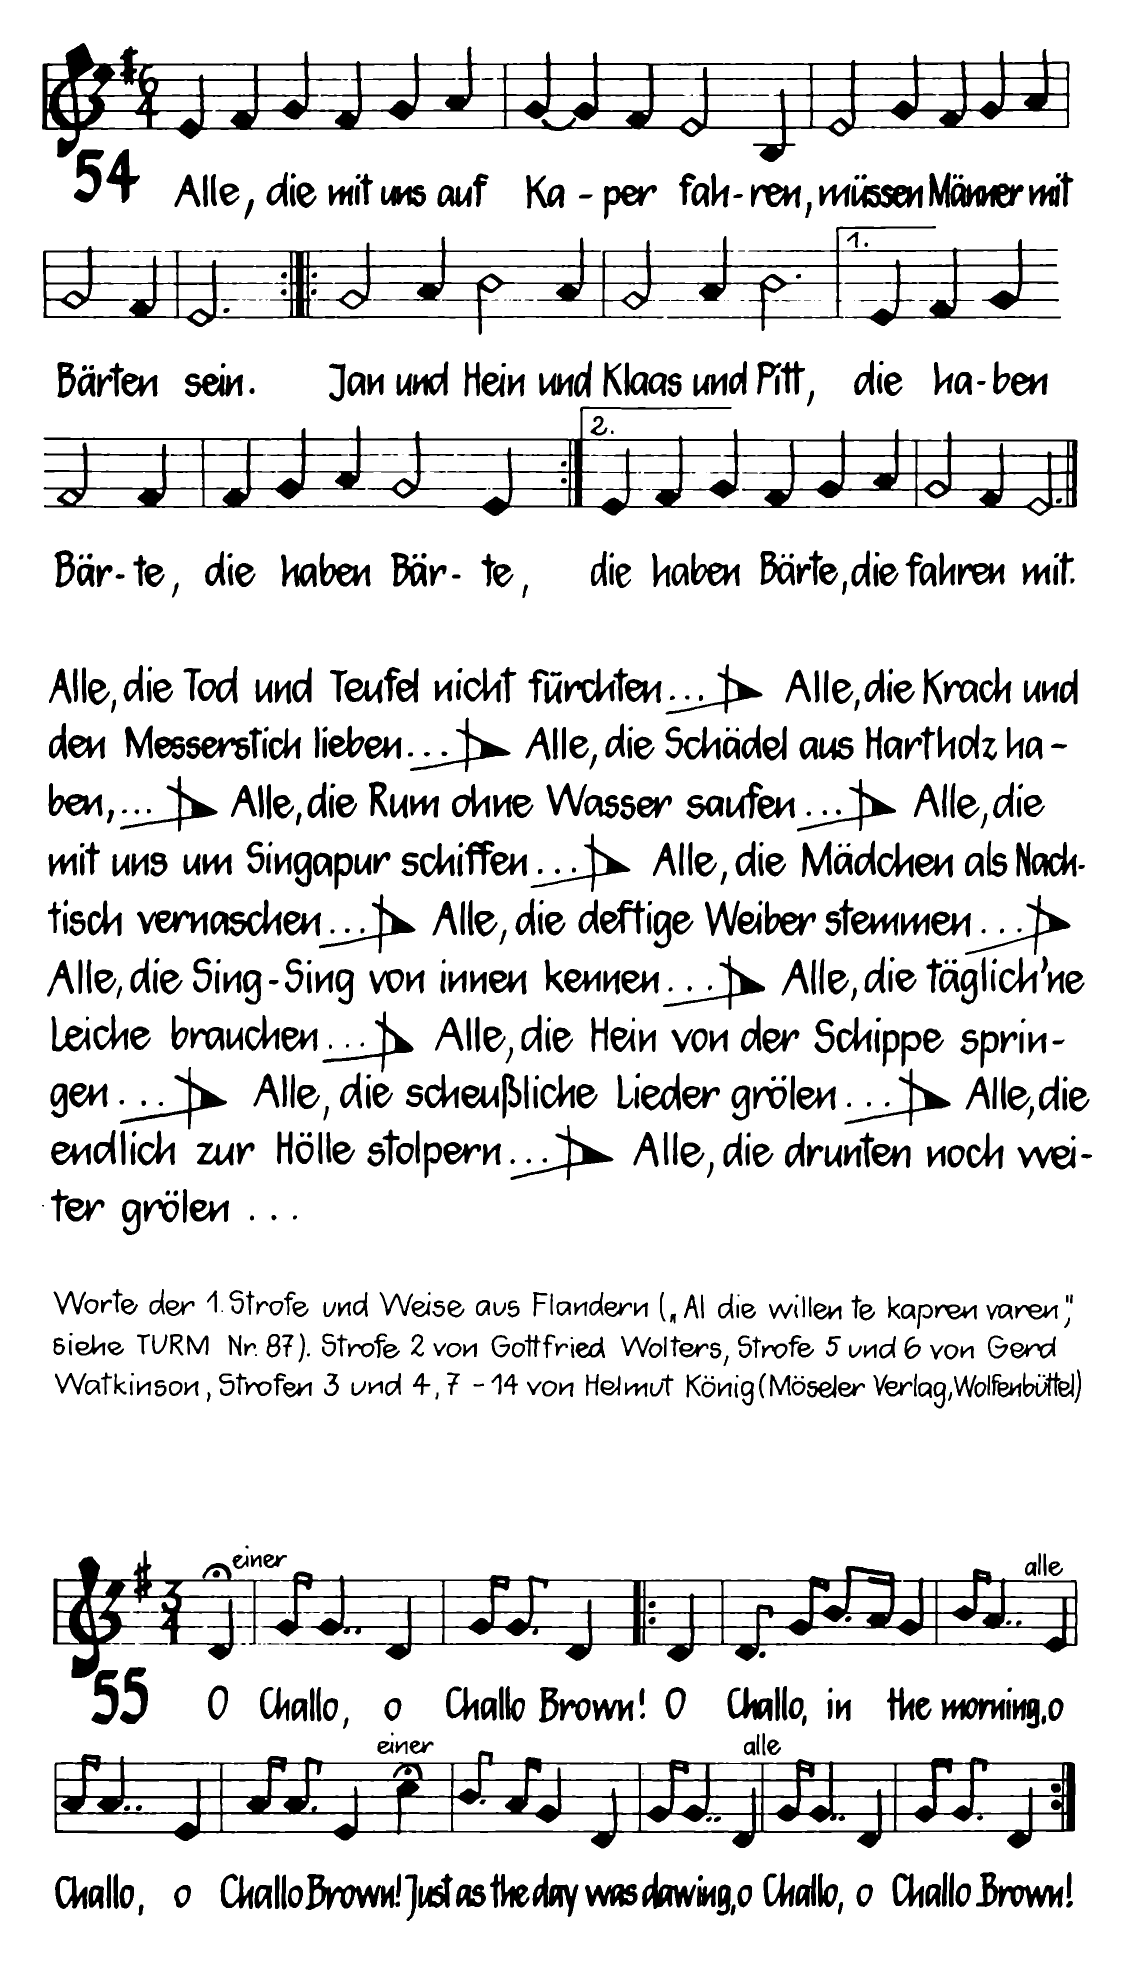 6
4
54
Alle, die mit uns auf Ka - per fah - ren, müssen Männer mit
1.
Bärten sein. Jan und Hein und Klaas und Pitt, die ha - ben
2.
Bär - te, die haben Bär - te, die haben Bärte, die fahren mit.
Alle, die Tod und Teufel nicht fürchten... Alle, die Krach und
den Messerstich lieben... Alle, die Schädel aus Hartholz ha -
ben,... Alle, die Rum ohne Wasser saufen... Alle, die
mit uns um Singapur schiffen... Alle, die Mädchen als Nach-
tisch vernaschen... Alle, die deftige Weiber stemmen...
Alle, die Sing - Sing von innen kennen... Alle, die täglich 'ne
Leiche brauchen... Alle, die Hein von der Schippe sprin-
gen... Alle, die scheußliche Lieder grölen... Alle, die
endlich zur Hölle stolpern... Alle, die drunten noch wei-
ter grölen ...
Worte der 1. Strofe und Weise aus Flandern („Al die willen te kapren varen",
siehe TURM Nr. 87). Strofe 2 von Gottfried Wolters, Strofe 5 und 6 von Gerd
Watkinson, Strofen 3 und 4, 7 - 14 von Helmut König (Möseler Verlag, Wolfenbüttel)
einer alle
3
4
55
O Challo, o Challo Brown! O Challo, in the morning, o
einer alle
Challo, o Challo Brown! Just as the day was dawing, o Challo, o Challo Brown!